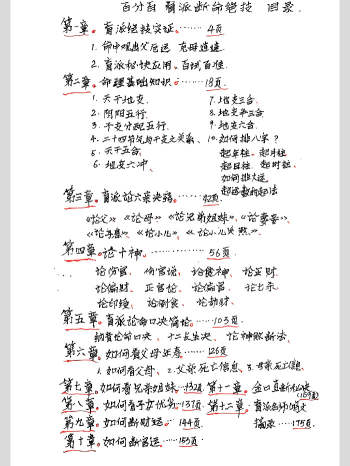 百分百 盲派断命绝技 目录
第一章。盲派绝技实证。…… 4页
1. 命中观出父
2. 盲派秘诀应用。百试百准
第二章。命理基础知识。…… 18页
1. 天干地支.
2. 阴阳五行.
3. 干支分配五行.
4. 二十四节气与干支之关系、
5. 天干五合.
6. 地支六冲.
7. 地支三合.
8. 地支三会.
9. 地支六合.
10. 如何排八字?
起年柱. 起月柱
起日柱. 起时柱.
如何排大运
第三章。盲派论六亲
《论父》《论母》《论兄弟姐妹》、《论妻妾》、
第四章。论十神。…… 56页
论伤官、 论食神、论正财
论偏财、 正官论、论偏官、论七杀
论印绶、 论劫财、
第五章。盲派论命口诀简论…… 103页
论命口诀、十二长生决、论神煞断法、
第六章。如何看父母年寿…… 126页
1. 如何看父母、2. 父亲死亡信息、3. 母亲死亡信息、
第七章。如何看兄弟姐妹…132页 第十一章。金口直断
第八章。如何看子女优劣…137页 第十二章。盲派
第九章。如何断财运…… 144页 摘录…… 175页
第十章。如何断官运…… 155页